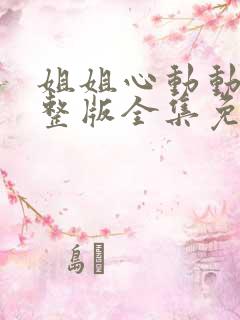 姐姐心動動
整版全集免
島